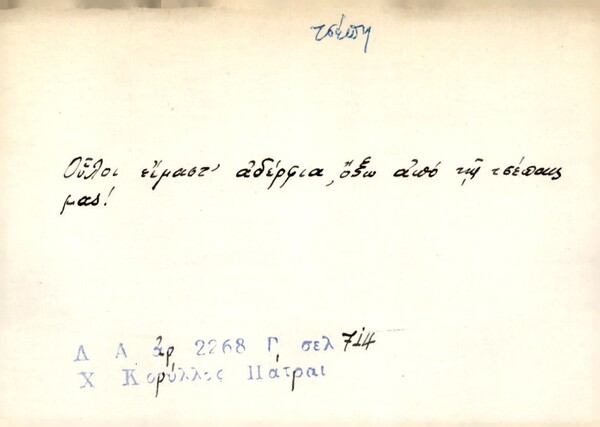 τσέπη
Οὗλοι εἴμαστ' ἀδέρφια, ὄξω ἀπό τὶς τσέπες
μας!
Λ Α ἀρ 2268 Γ σελ 714
Χ Κορύλλος Πάτραι